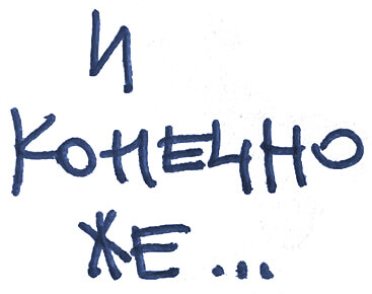 И
КОНЕЧНО
ЖЕ...